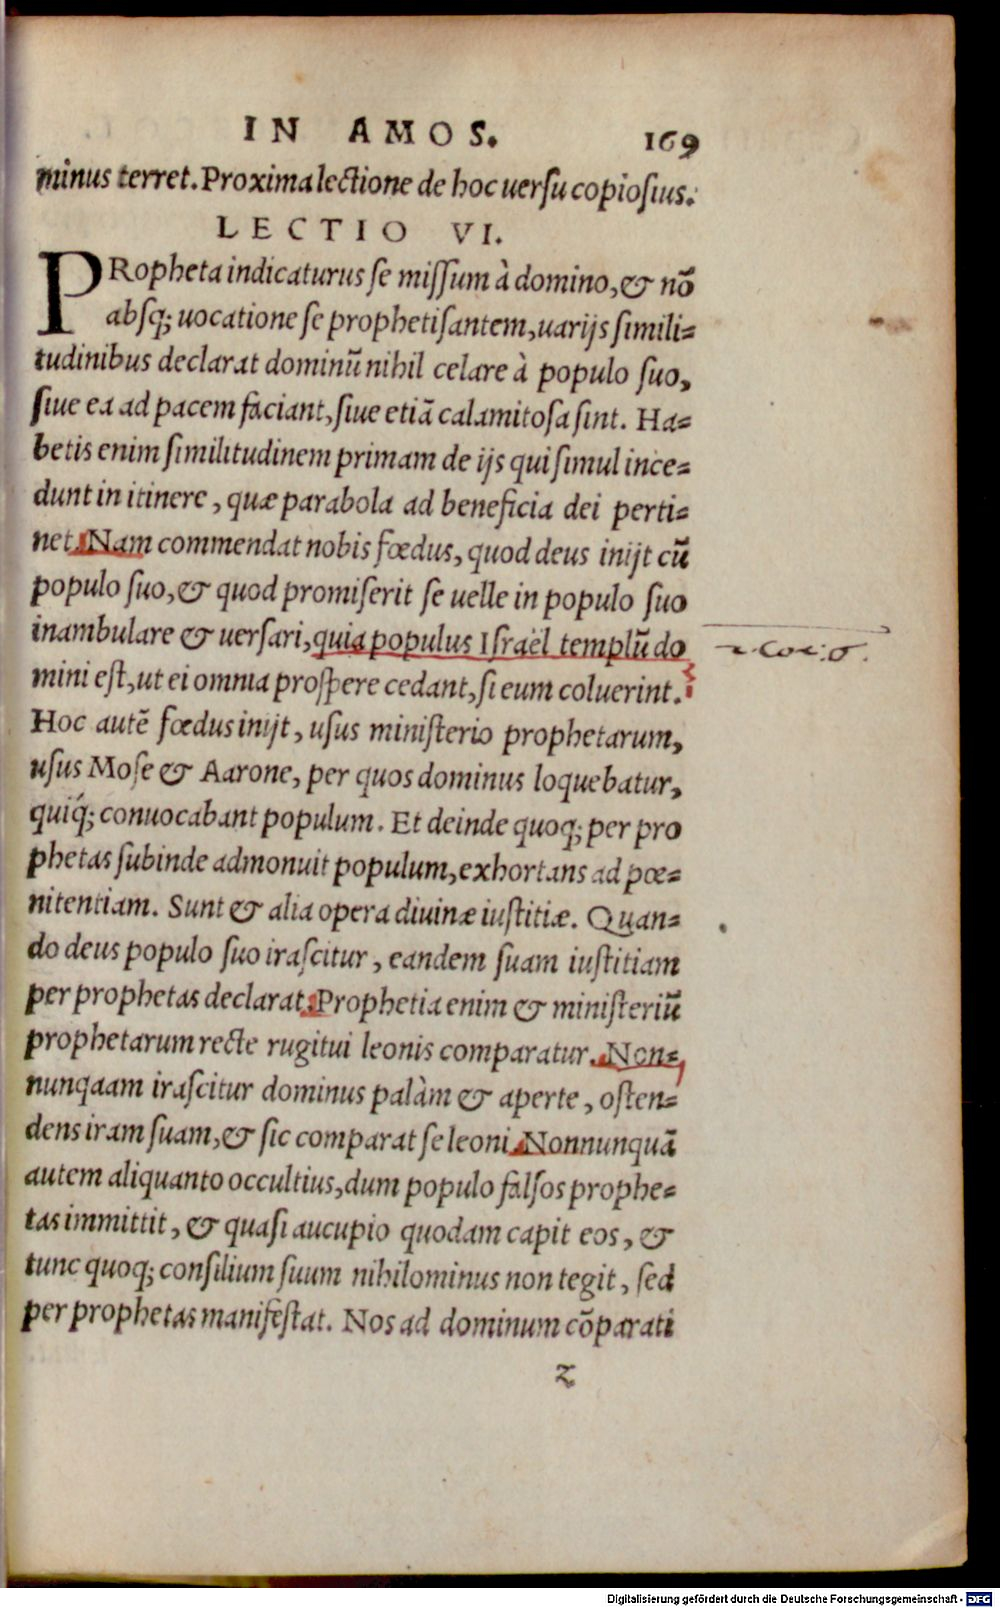 IN AMOS. 169
minus terret. Proxima lectione de hoc uersu copiosius.
LECTIO VI.
PRopheta indicaturus se missum à domino, & nõ
absq; uocatione se prophetisantem, uarijs simili-
tudinibus declarat dominũ nihil celare à populo suo,
siue ea ad pacem faciant, siue etiã calamitosa sint. Ha-
betis enim similitudinem primam de ijs qui simul ince-
dunt in itinere, quæ parabola ad beneficia dei perti-
net. Nam commendat nobis fœdus, quod deus inijt cũ
populo suo, & quod promiserit se uelle in populo suo
inambulare & uersari, quia populus Israël templũ do
mini est, ut ei omnia prospere cedant, si eum coluerint.
2. Cor: 6.
Hoc autẽ fœdus inijt, usus ministerio prophetarum,
usus Mose & Aarone, per quos dominus loquebatur,
quiq́; conuocabant populum. Et deinde quoq; per pro
phetas subinde admonuit populum, exhortans ad pœ-
nitentiam. Sunt & alia opera diuinæ iustitiæ. Quan-
do deus populo suo irascitur, eandem suam iustitiam
per prophetas declarat. Prophetia enim & ministeriũ
prophetarum recte rugitui leonis comparatur. Non-
nunqaam irascitur dominus palàm & aperte, osten-
dens iram suam, & sic comparat se leoni. Nonnunquã
autem aliquanto occultius, dum populo falsos prophe-
tas immittit, & quasi aucupio quodam capit eos, &
tunc quoq; consilium suum nihilominus non tegit, sed
per prophetas manifestat. Nos ad dominum cõparati
z
Digitalisierung gefördert durch die Deutsche Forschungsgemeinschaft - DFG